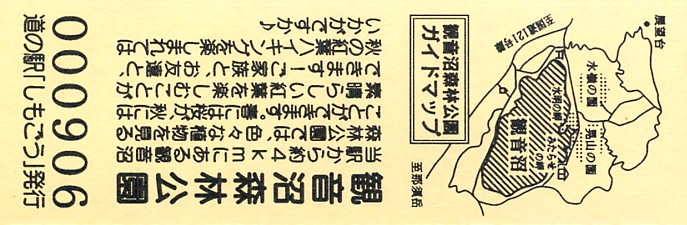 観音沼森林公園
当駅から約4kmにある観音沼
森林公園では、色々な植物を見る
ことができます。春には桜が、秋には
素晴らしい紅葉を楽しむことが
できます！ご家族と、お友達と、
秋の紅葉ハイキングを楽しまれては
いかがですか♪
観音沼森林公園
ガイドマップ
至国道121号線
展望台
観音沼
至那須岳
000906
道の駅「しもごう」発行